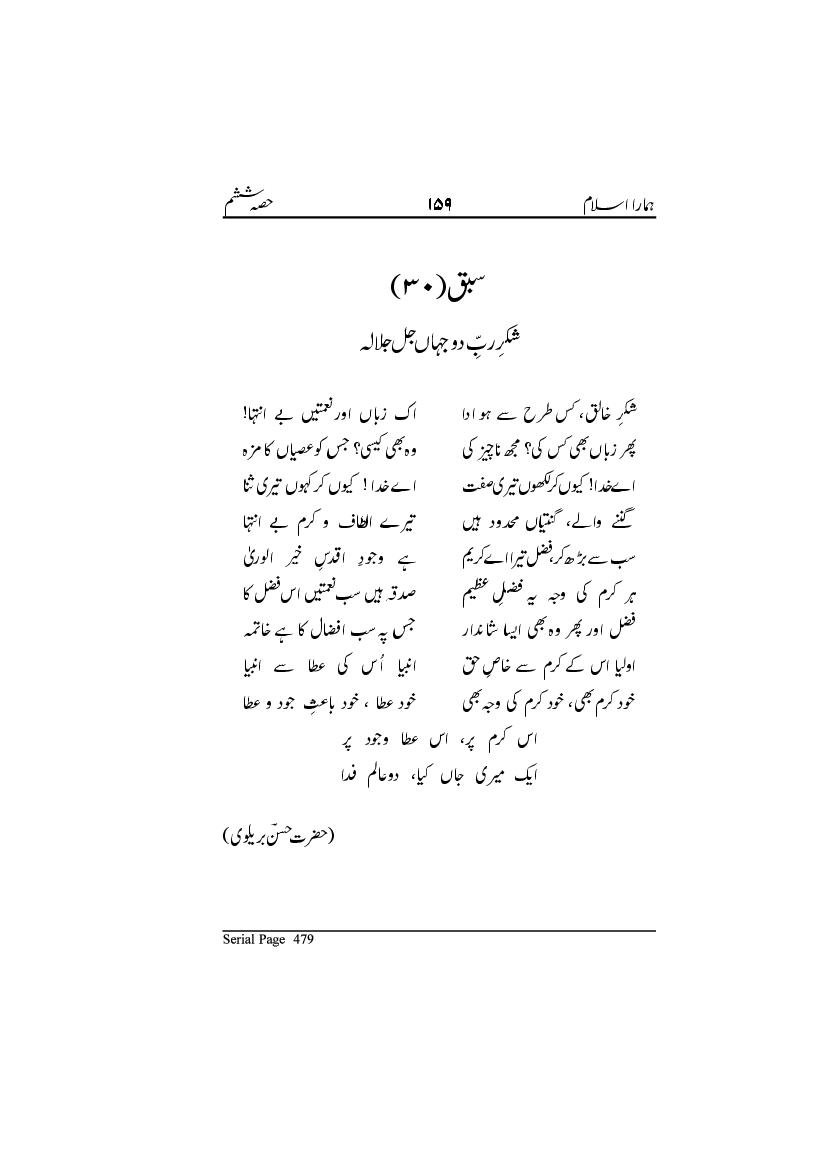 ہمارا اسلام ۱۵۹ حصہ ششم
سبق (۳۰)
شکرِ ربِّ دو جہاں جل جلالہ
شکرِ خالق، کس طرح سے ہو ادا اک زباں اور نعمتیں بے انتہا!
پھر زباں بھی کس کی؟ مجھ ناچیز کی وہ بھی کیسی؟ جس کو عصیاں کا مزہ
اے خدا! کیوں کر لکھوں تیری صفت اے خدا! کیوں کر کہوں تیری ثنا
گننے والے، گنتیاں محدود ہیں تیرے الطاف و کرم بے انتہا
سب سے بڑھ کر، فضل تیرا اے کریم ہے وجودِ اقدسِ خیر الوریٰ
ہر کرم کی وجہ یہ فضلِ عظیم صدقہ ہیں سب نعمتیں اس فضل کا
فضل اور پھر وہ بھی ایسا شاندار جس پہ سب افضال کا ہے خاتمہ
اولیا اس کے کرم سے خاصِ حق انبیا اُس کی عطا سے انبیا
خود کرم بھی، خود کرم کی وجہ بھی خود عطا، خود باعثِ جود و عطا
اس کرم پر، اس عطا وجود پر
ایک میری جاں کیا، دو عالم فدا
(حضرت حسنؔ بریلوی)
Serial Page 479